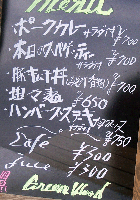 Menu
・ポークカレー サラダ付 ¥700
・本日のスパゲッティー サラダ付 ¥700
・豚キムチ丼 ¥700
・担々麺 ¥650
・ハンバーグステーキ ¥750
Cafe ¥300
Juice ¥300
Green Wood